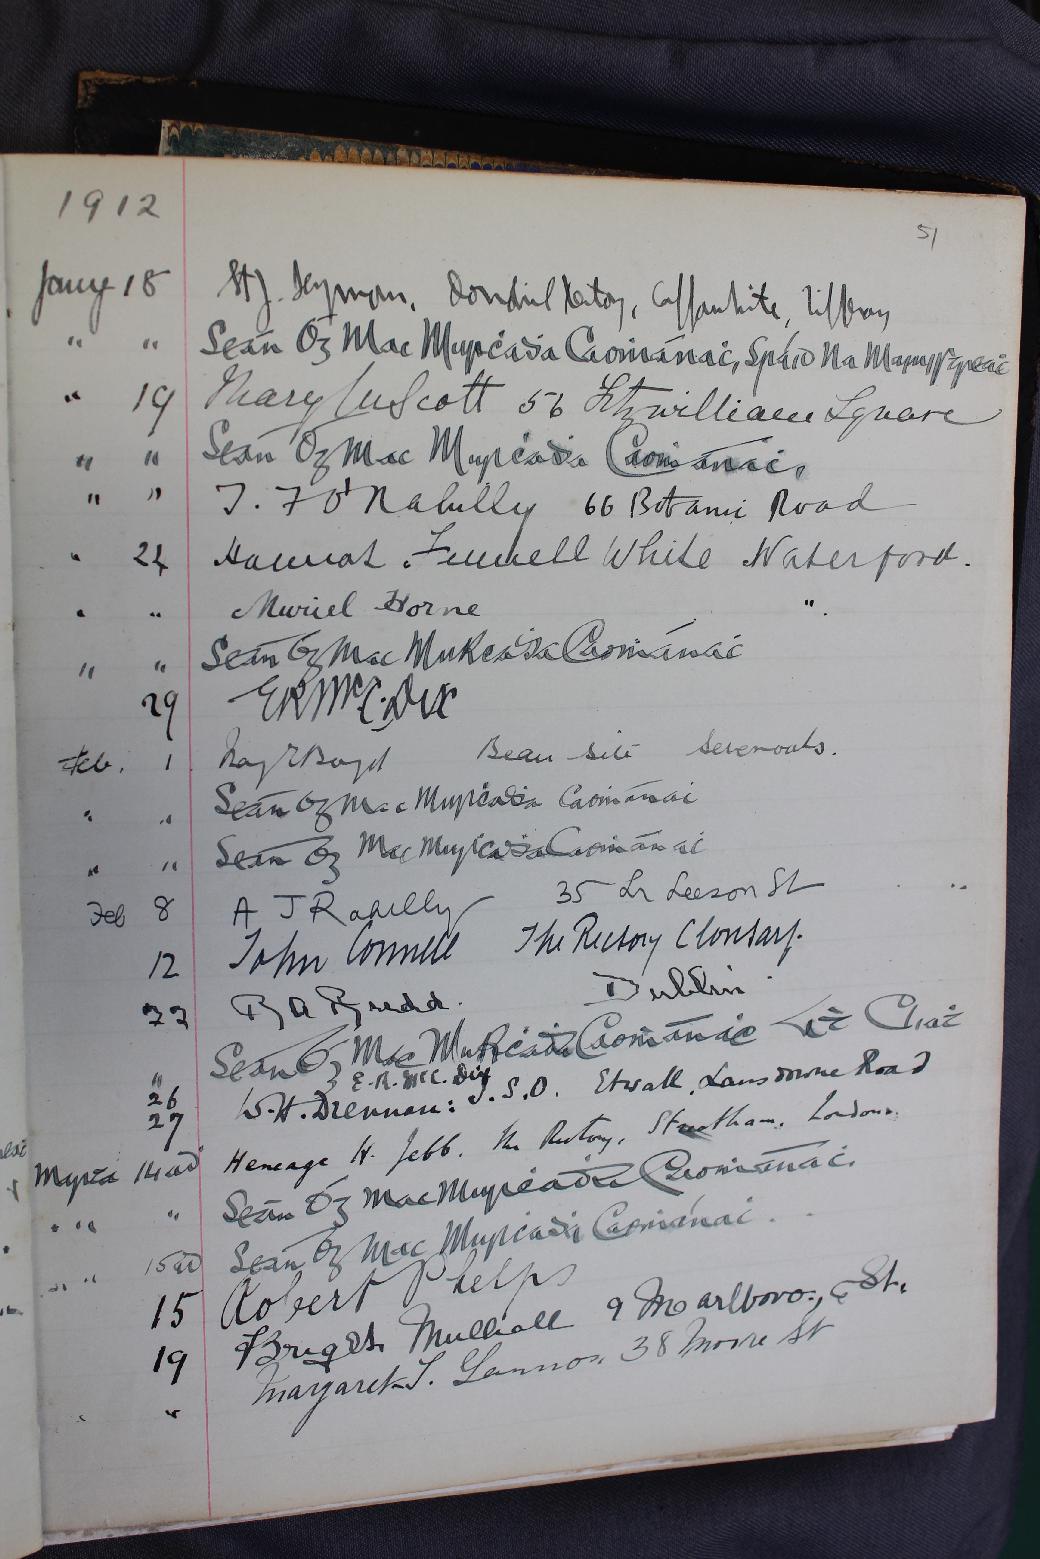 1912
51
Jany 18 St. J. Seymour, Donohil Rectory, Cappawhite, Tipperary
" " Seán Óg Mac Murċaḋa Caománaċ, Sráid Na
" 19 Mary Scott 56 Fitzwilliam Square
" " Seán Óg Mac Murċaḋa Caománaċ,
" " T. F O'Rahilly 66 Botanic Road
" 24 Hannah Fennell White Waterford.
" " Muriel Horne ".
" " Seán Óg Mac MuRċaḋa Caománaċ
29 E R McC. Dix
Feb. 1 Boyd Beau Site Sevenoaks.
" " Seán Óg Mac Murċaḋa Caománaċ
" " Seán Óg Mac Murċaḋa Caománaċ
Feb 8 A J Rahilly 35 Lr Leeson St
12 John Connell The Rectory Clontarf.
22 Dublin
" Seán Óg Mac MuRċaḋa Caománaċ Áṫ Cliaṫ
26 E. R. McC. Dix
27 W. H. Drennan: J. S. O. Etwall, Lansdowne Road
Heneage H. Jebb. The Rectory, Streatham, London.
Márta 14ad Seán Óg Mac Murċaḋa Caománaċ.
" " " Seán Óg Mac Murċaḋa Caománaċ.
" " 15ad
15 Robert Phelps
19 Brigh Mulhall 9 Marlboro., St.
" " Margaret T. Gannon 38 Moore St